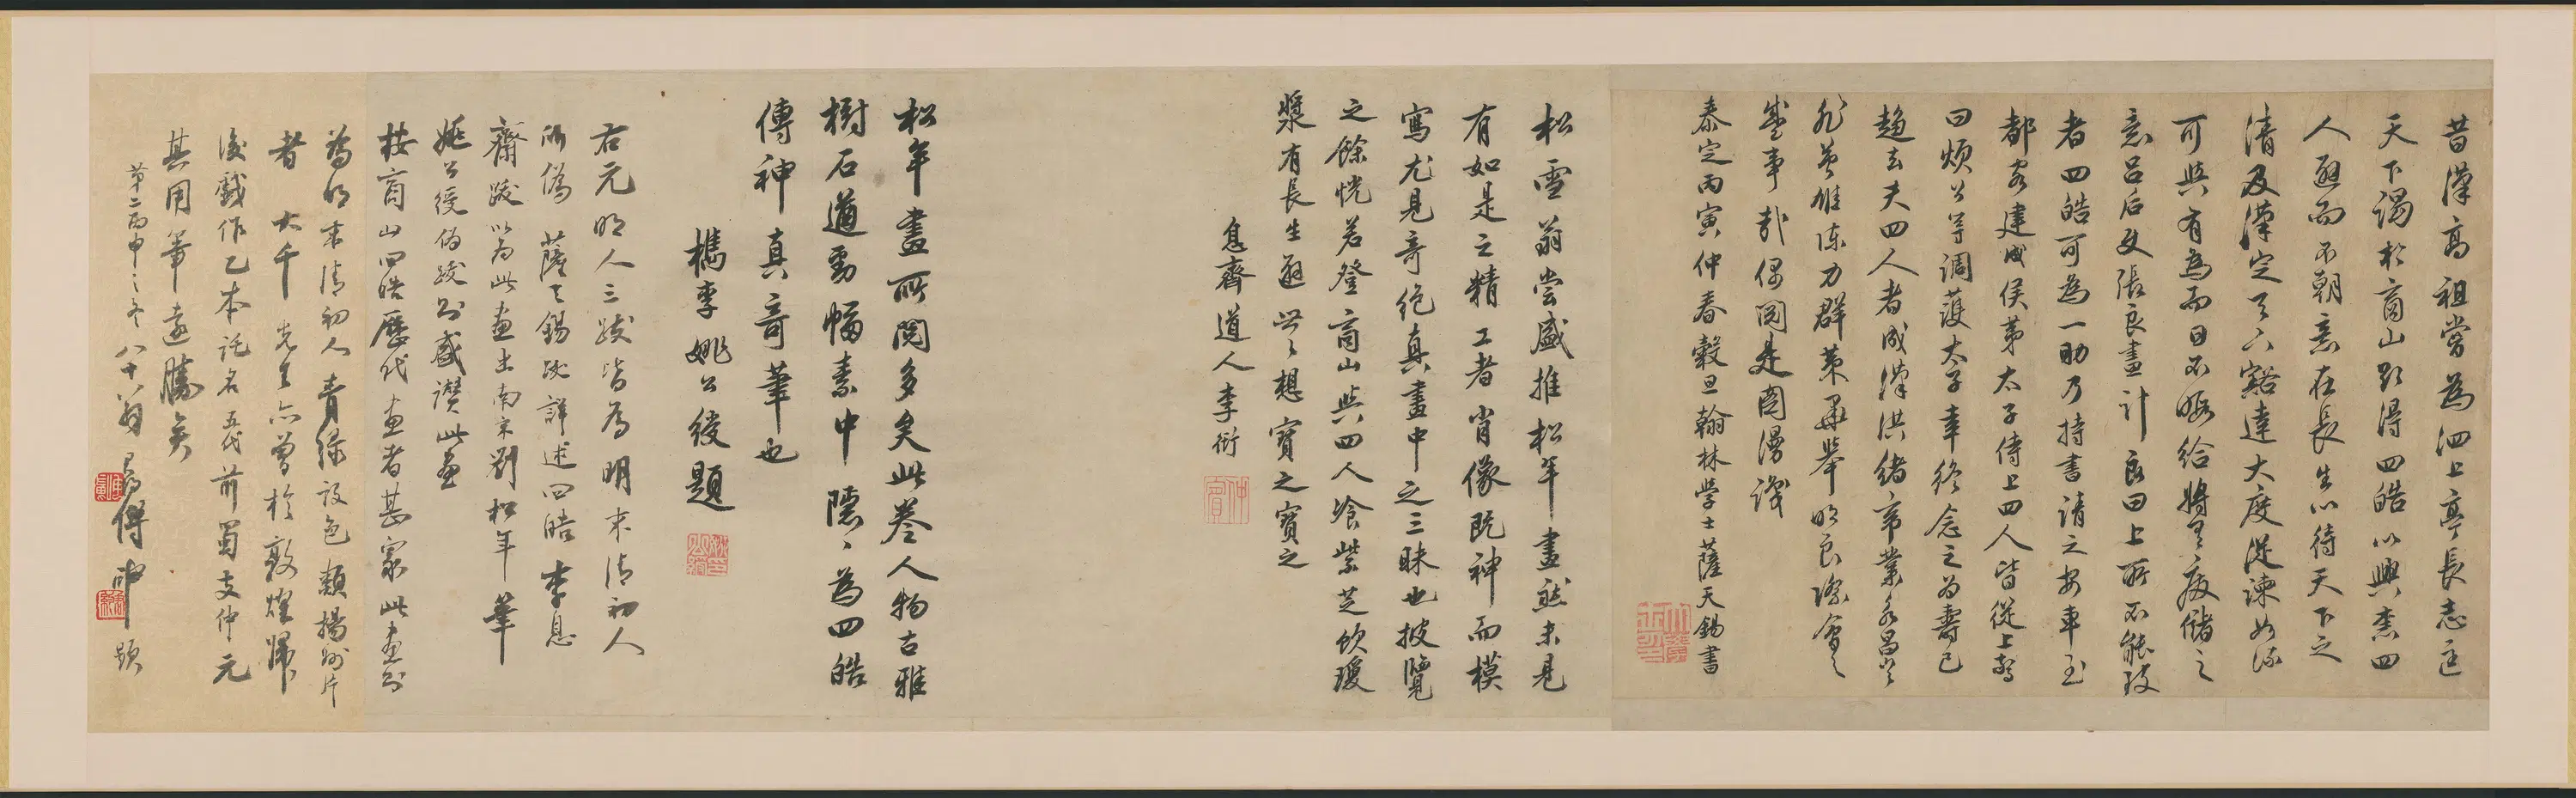 昔漢高祖嘗為泗上亭長志匡
天下謁於商山既得四皓以輿
人逃而不朝意在長生以待天下之
清及漢定天下豁達大度從諫如流
可與有為而日不暇給將有廢儲之
意呂后及張良畫計良曰上所不能致
者四皓可為一助乃持書請之安車至
都客建成侯第太子侍上四人皆從上驚
曰煩公等調護太子幸終念之為壽已
趨去夫四人者成漢洪緒帝業永昌豈
非英雄陳力群策畢舉明良際會之
盛事哉偶閱是圖漫識
泰定丙寅仲春穀旦翰林學士薩天錫書
松雪翁嘗盛推松年畫然未見
有如是之精工者肖像既神而模
寫尤見奇絕真畫中之三昧也披覽
之餘恍若登商山與四人飡紫芝飲瓊
漿有長生逃世之想寶之寶之
息齋道人李衎
仲賓
松年畫所閱多矣此卷人物古雅
樹石遒勁幅素中隱隱為四皓
傳神真奇筆也
檇李姚公綬題
右元明人三跋皆為明末清初人
所偽 薩天錫跋詳述四皓李息
齋跋以為此畫出南宋劉松年筆
姚公綬偽跋則盛讚此畫
按商山四皓歷代畫者甚家此畫則
為明末清初人青綠設色類揚州片
者 大千先生亦曾於敦煌歸
後戲作乙本託名五代前蜀支仲元
其用筆遠勝矣
第二丙申之冬八十翁
傅申題